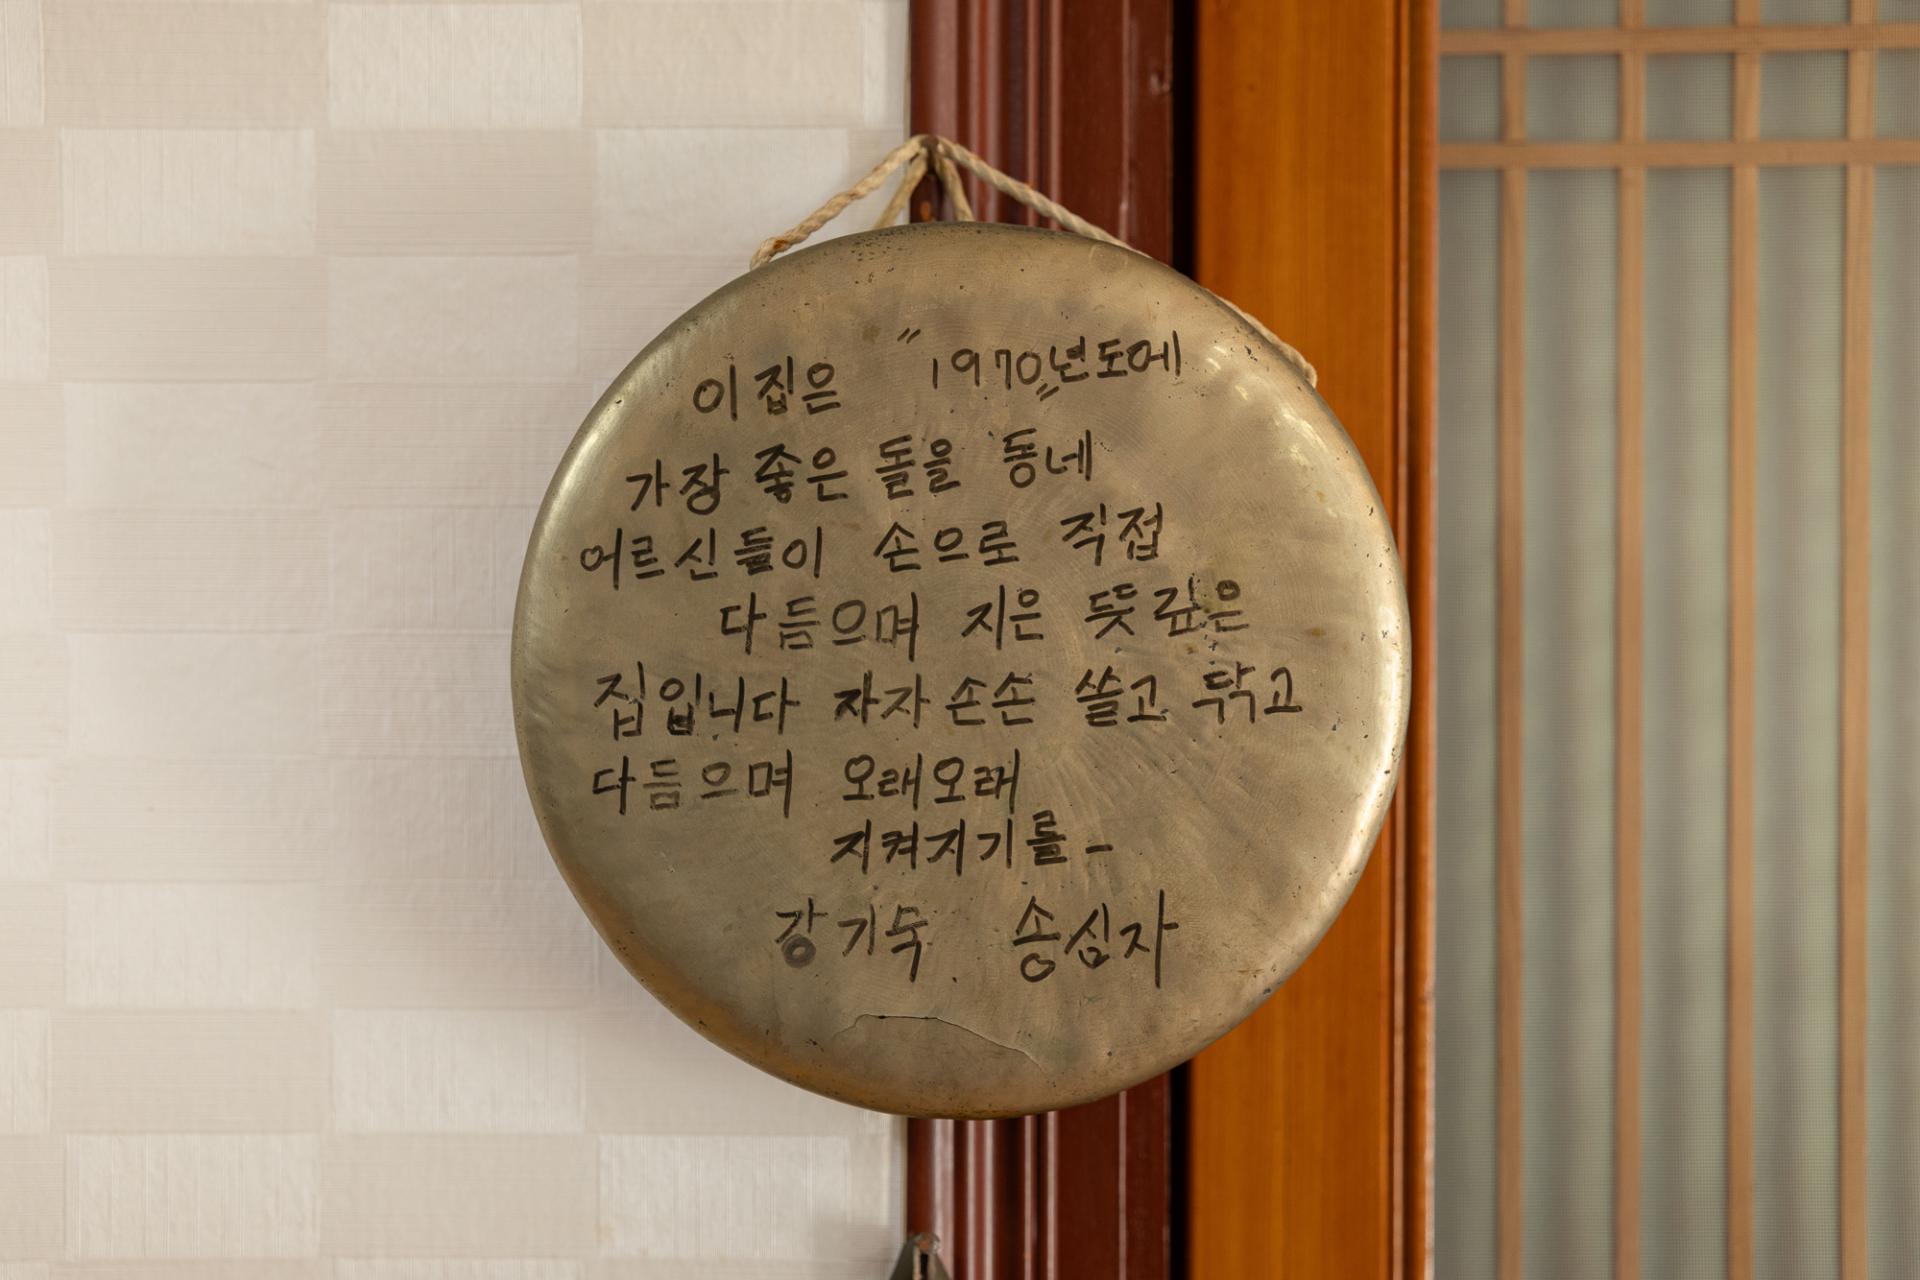 이 집은 "1970"년도에
가장 좋은 돌을 동네
어르신들이 손으로 직접
다듬으며 지은 뜻깊은
집입니다 자자손손 쓸고 닦고
다듬으며 오래오래
지켜지기를-
강기숙. 송심자